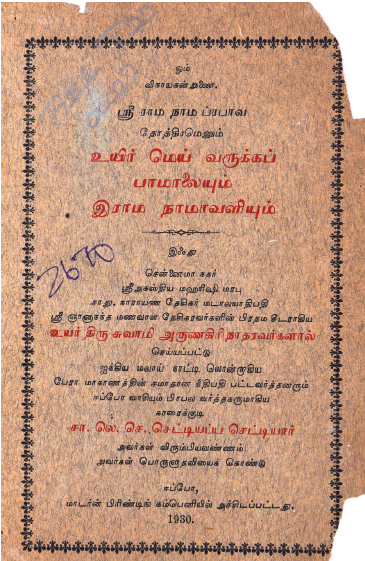 ஓம்
விநாயகன் துணை.
ஸ்ரீ ராம நாம ப்ரபாவ
தோத்திரமெனும்
உயிர் மெய் வருக்கப்
பாமாலையும்
இராம நாமாவளியும்
இஃது
சென்னைமா நகர்
ஸ்ரீஅகஸ்திய மஹரிஷி மரபு
சாது, நாராயண தேசிகர் மடாலயாதிபதி
ஸ்ரீ ஞானானந்த மணவாள தேசிகரவர்களின் பிரதம சிடராகிய
உயர் திரு சுவாமி அருணகிரிநாதரவர்களால்
செய்யப்பட்டு
ஐக்கிய மலாய் நாட்டி லொன்றாகிய
பேரா மாகாணத்தின் சமாதான நீதிபதி பட்டவர்த்தனரும்
ஈப்போ வாசியும் பிரபல வர்த்தகருமாகிய
காரைக்குடி
சா. லெ. செ. செட்டியப்ப செட்டியார்
அவர்கள் விரும்பியவண்ணம்
அவர்கள் பொருளுதவியைக் கொண்டு
ஈப்போ,
மாடர்ன் பிரிண்டிங் கம்பெனியில் அச்சிடப்பட்டது.
1930.
2670